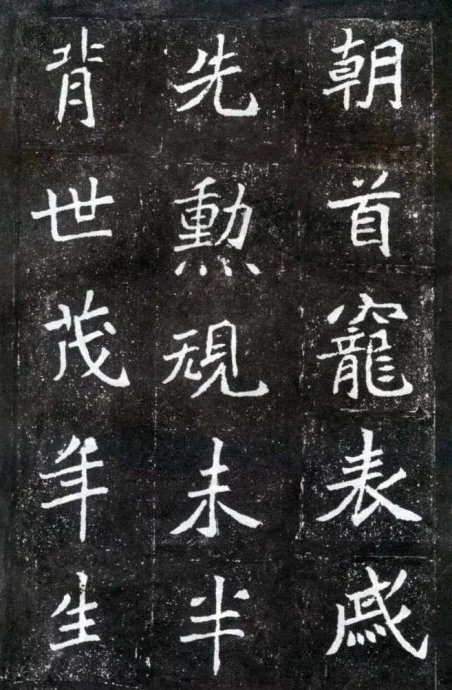 朝首寵表戚
先勳規未半
背世茂年生